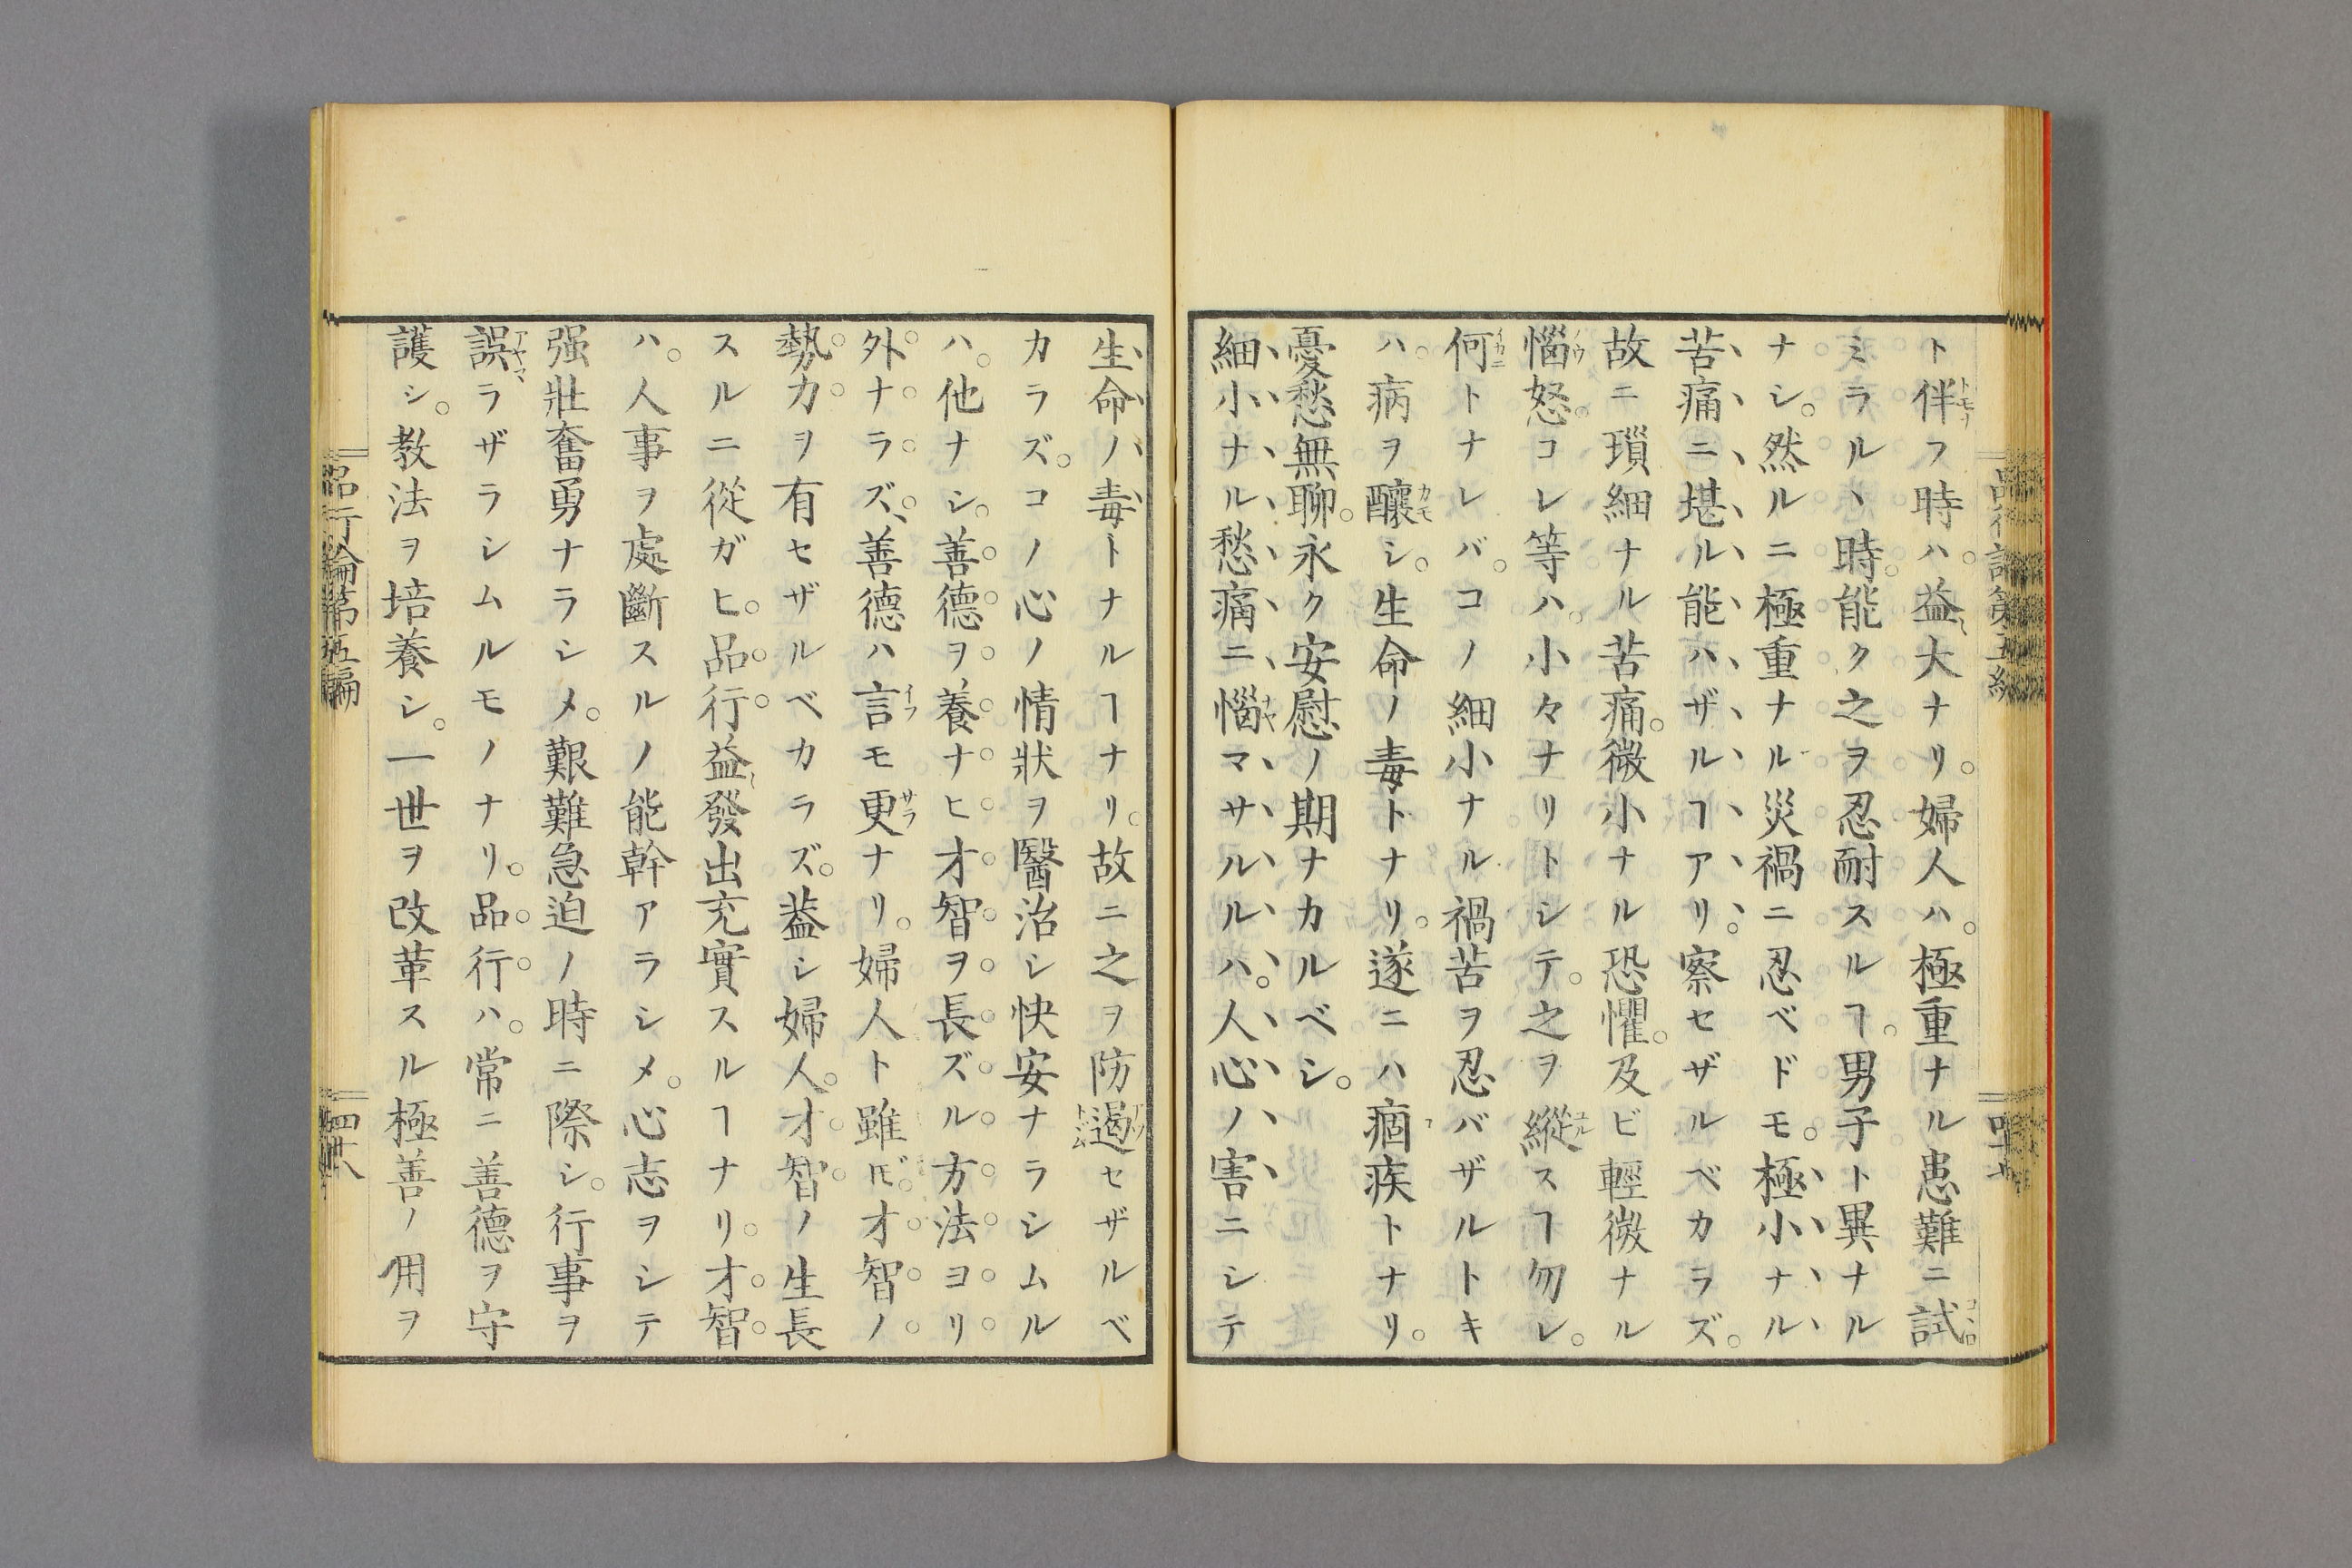 ト伴フ時ハ。益〻大ナリ。婦人ハ。極重ナル患難ニ試
ミラルヽ時。能ク之ヲ忍耐スルヿ。男子ト異ナル
ナシ。然ルニ極重ナル災禍ニ忍ベドモ。極小ナル
苦痛ニ堪ル能ハザルヿアリ。察セザルベカラズ。
故ニ瑣細ナル苦痛。微小ナル恐懼。及ビ輕微ナル
惱怒。コレ等ハ。小々ナリトシテ。之ヲ縱スヿ勿レ。
何トナレバ。コノ細小ナル禍苦ヲ忍バザルトキ
ハ。病ヲ釀シ。生命ノ毒トナリ。遂ニハ痼疾トナリ。
憂愁無聊。永ク安慰ノ期ナカルベシ。
細小ナル愁痛ニ惱マサルルハ。人心ノ害ニシテ
生命ノ毒トナルヿナリ。故ニ之ヲ防遏セザルベ
カラズ。コノ心ノ情狀ヲ醫治シ快安ナラシムル
ハ。他ナシ。善德ヲ養ナヒ才智ヲ長ズル方法ヨリ
外ナラズ、善德ハ言モ更ナリ。婦人ト雖ドモ。才智ノ
勢力ヲ有セザルベカラズ。葢シ婦人。才智ノ生長
スルニ從ガヒ。品行益〻發出充實スルヿナリ。才智
ハ。人事ヲ處斷スルノ能幹アラシメ。心志ヲシテ
强壯奮勇ナラシメ。艱難急迫ノ時ニ際シ。行事ヲ
誤ラザラシムルモノナリ。品行ハ。常ニ善德ヲ守
護シ。教法ヲ培養シ。一世ヲ改革スル極善ノ用ヲ
品行論第五編
四十八